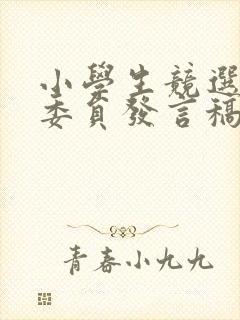 小學生競選
委員發言稿
青春小九九